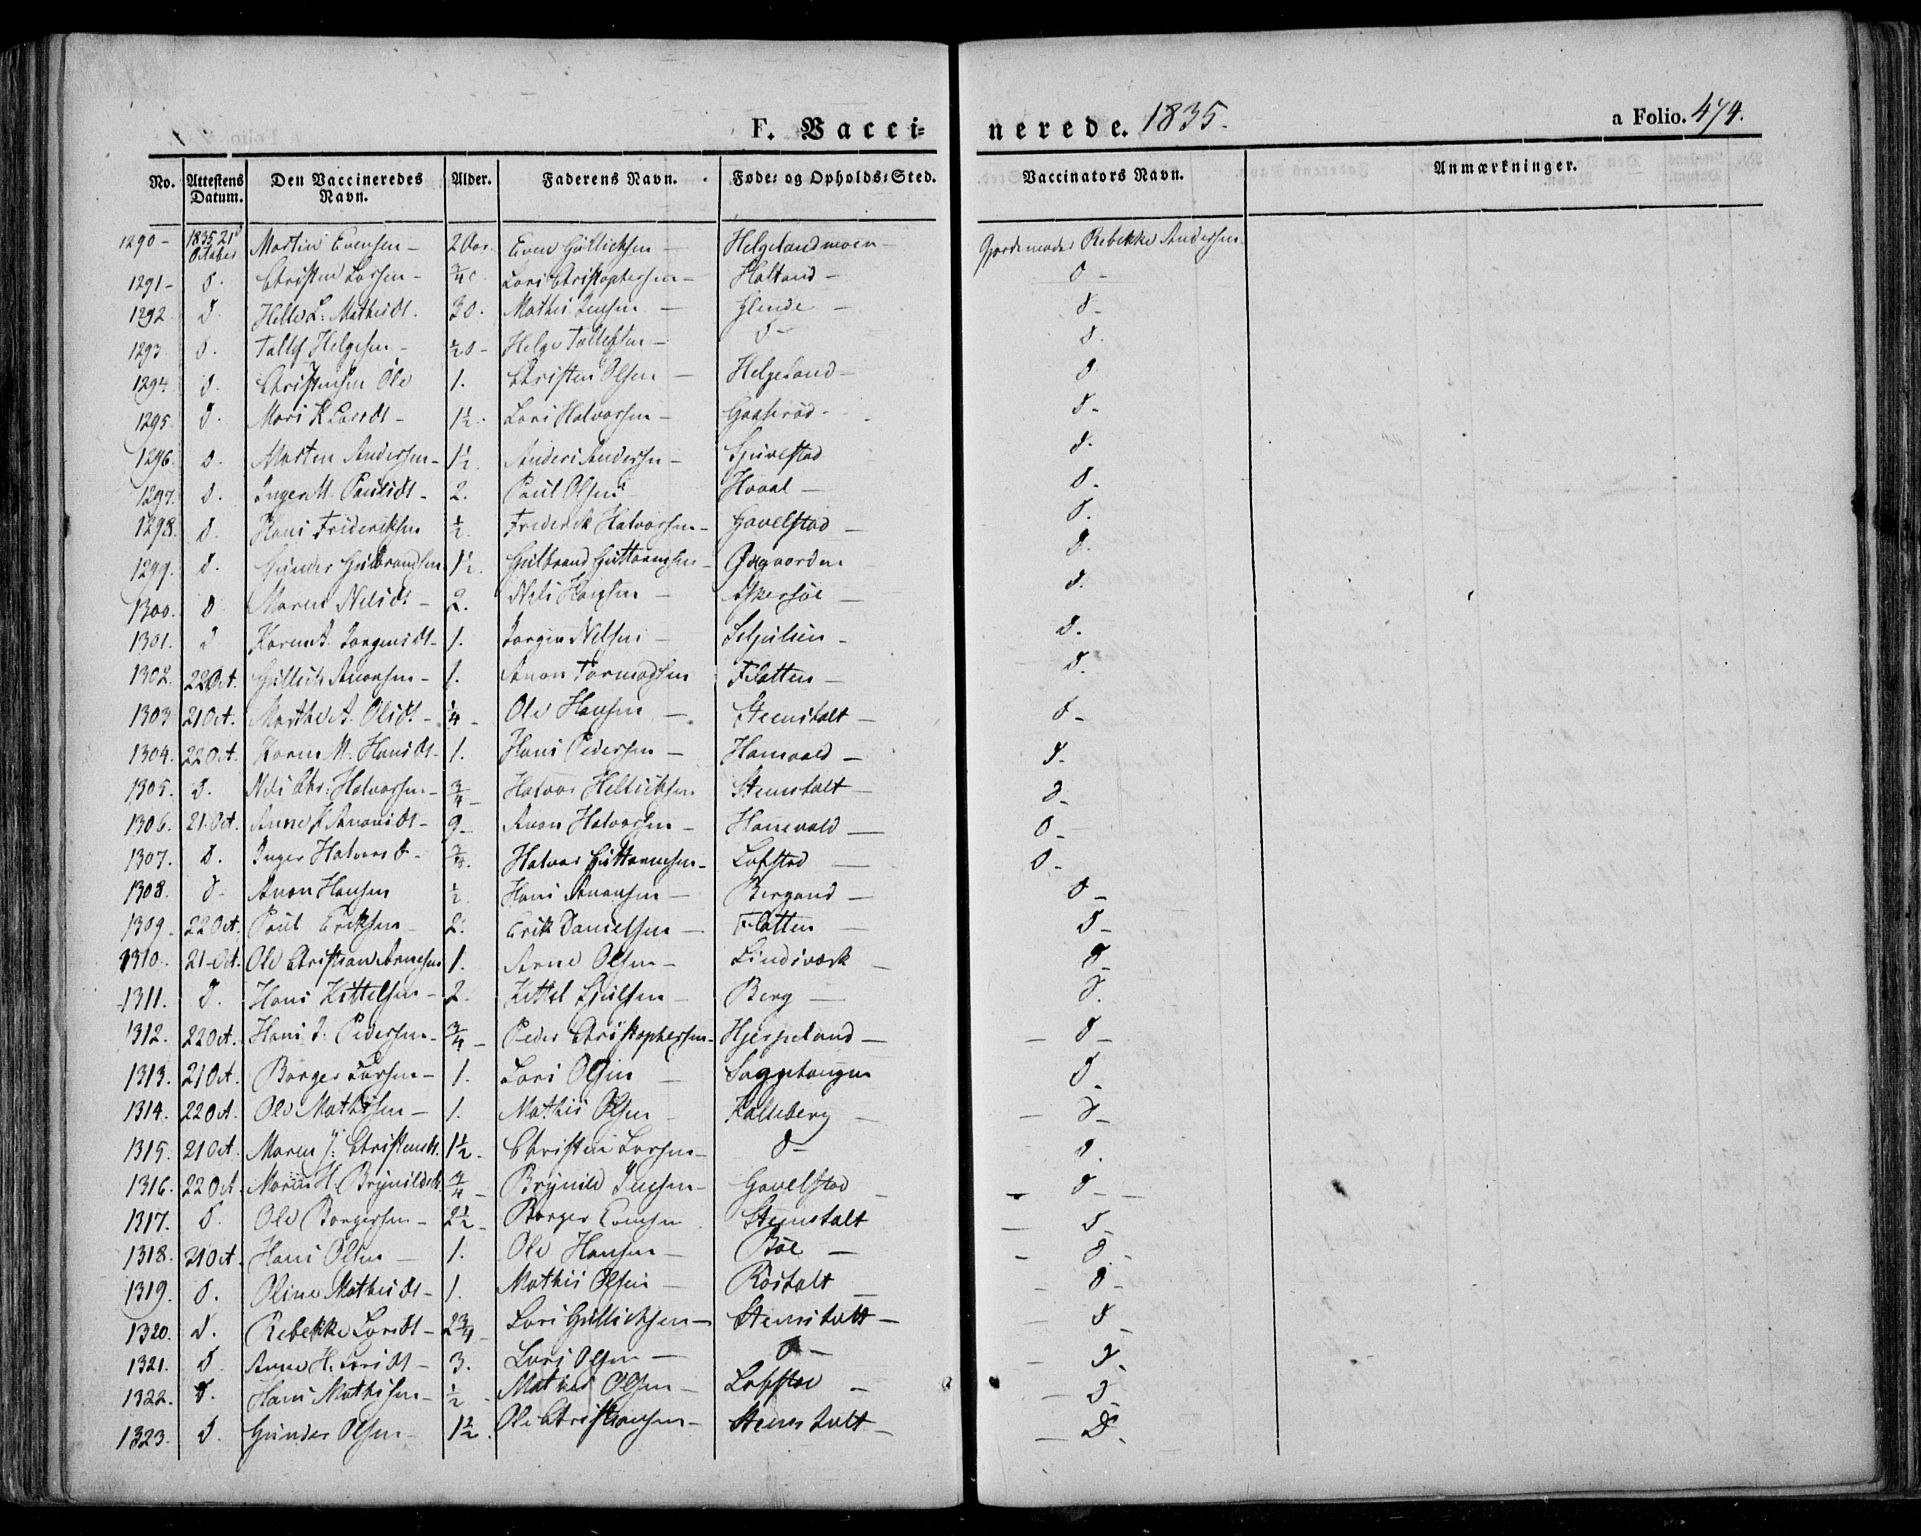 F. Vacci= nerede. 1835. a Folio. 474.
No. Attestens Datum. Den Vaccineredes Navn. Alder. Faderens Navn. Føde= og Opholds=Sted. Vaccinators Navn. Anmærkninger.
1290 - 1835 21 October Martin Evensen - 2 Aar. Even Gullichsen - Helgelandmoen - Gjordemoder Rebekke Andersen
1291 - D. Christen Larsen - 3/4 Lars Christophersen - Holtand - D -
1292 D. Helle L. Mathisdt. 30. Mathis Jensen - Glende - D -
1293 D. Tallef Helgesen - 1/2 Helge Tallefsen - D - D.
1294 D. Christensen Ole 1. Christen Olsen - Helgeland - D
1295. D. Mari K Larsdt - 1 1/2. Lars Halvorsen - D -
1296. D. Morten Andersen - 1 1/2. Anders Andersen - D.
1297. D. Inger M. Paulsdt - 2. Paul Olsen - Hoval - D -
1298. D. Hans Frideriksen 1/2. Frederik Halvorsen - Gavelstad - D.
1299. D. Gunder Gulbrandsen 1 1/2. Gulbrand Guttormsen - Øxgaarden - D.
1300. D. Maren Nilsdt - 2. Nils Hansen - Askersøe - D.
1301. D Karen A. Jørgensdt - 1. Jørgen Nilsen - D.
1302. 22 Oct. Gullich Anonsen - 1. Anon Tormodsen Flatten - D.
1303 21 Oct. Marthe A. Olsdt - 1/4 - Ole Hansen - Steenstalt - D -
1304. 22 Oct. Karen M. Hansdt - 1. Hans Pedersen - Hanevald - D.
1305. D. Nils Chr. Halvorsen - 3/4 - Halvor Hellichsen Steenstalt - D -
1306. 21 Oct. Anne K Anonsdt - 9 - Anon Halvorsen - Hanevald - D -
1307. D. Inger Halvorsdt - 3/4. Halvor Guttormsen - Lofstad - D -
1308. D. Anon Hansen 1/2. Hans Anonsen - Bergand - D -
1309. 22 Oct. Paul Eriksen - 2. Erik Danielsen - Flatten - D -
1310. 21 Oct. Ole Christian Arnesen 1. Arne Olsen - Lindsværk - D -
1311. D. Hans Kittelsen - 2. Kittel Sjulsen - Berg - D.
1312. 22 Oct. Hans J. Pedersen - 3/4 - Peder Christophersen - Hjerpeland - D -
1313. 21 Oct. Borger Larsen - 1. Lars Olsen - Saggetangen D -
1314. 22 Oct. Ole Mathisen - 1. Mathis Olsen - Kalleberg - D -
1315. 21 Oct. Maren J. Christensdt. 1 1/2 - Christen Larsen - D - D.
1316. 22 Oct Maren H. Brynildsdt 3/4 - Brynild Jensen - Gavelstad - D -
1317. D. Ole Borgersen - 2 1/2 - Borger Evensen Steenstalt - D -
1318. 21 Oct. Hans Olsen - 1. Ole Hansen - Bøe - D -
1319. D. Oline Mathisdt - 1. Mathis Olsen - Røstalt - D -
1320. D. Rebekke Larsdt - 2 3/4 - Lars Gullichsen - Steenstalt - D -
1321. D Anne H. Larsdt - 3. Lars Olsen - D - D -
1322. D. Hans Mathisen - 1/2 - Mathis Olsen - Lofstad - D -
1323. D. Gunder Olsen - 1 1/2. Ole Christiansen - Steenstalt - D -